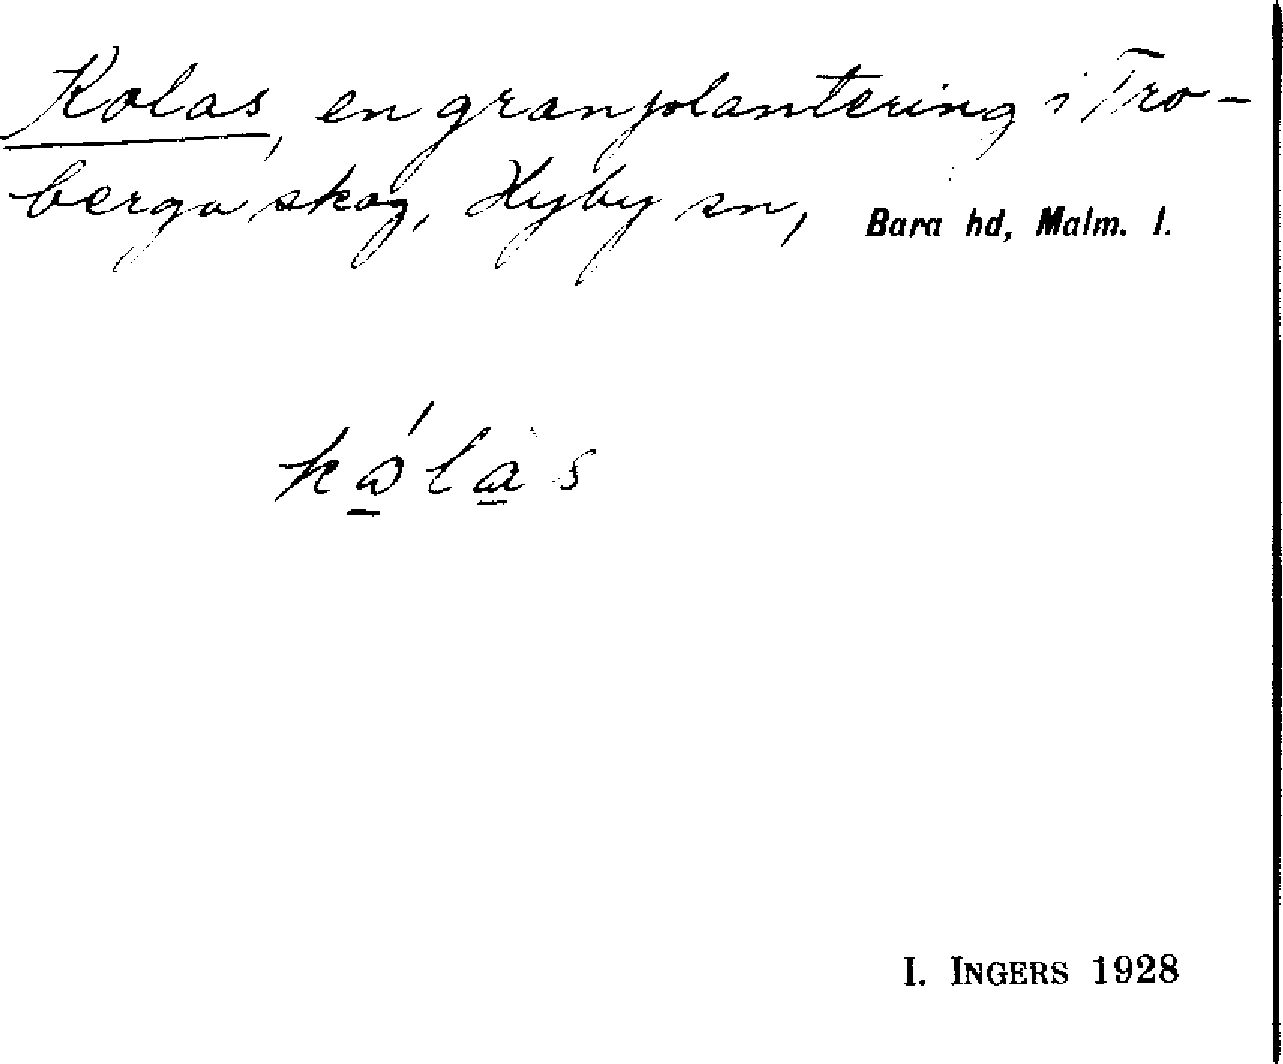 Kolas, en granplantering i Tro-
berga skog, Hyby sn, Bara hd, Malm. l.
kålàs
I. INGERS 1928